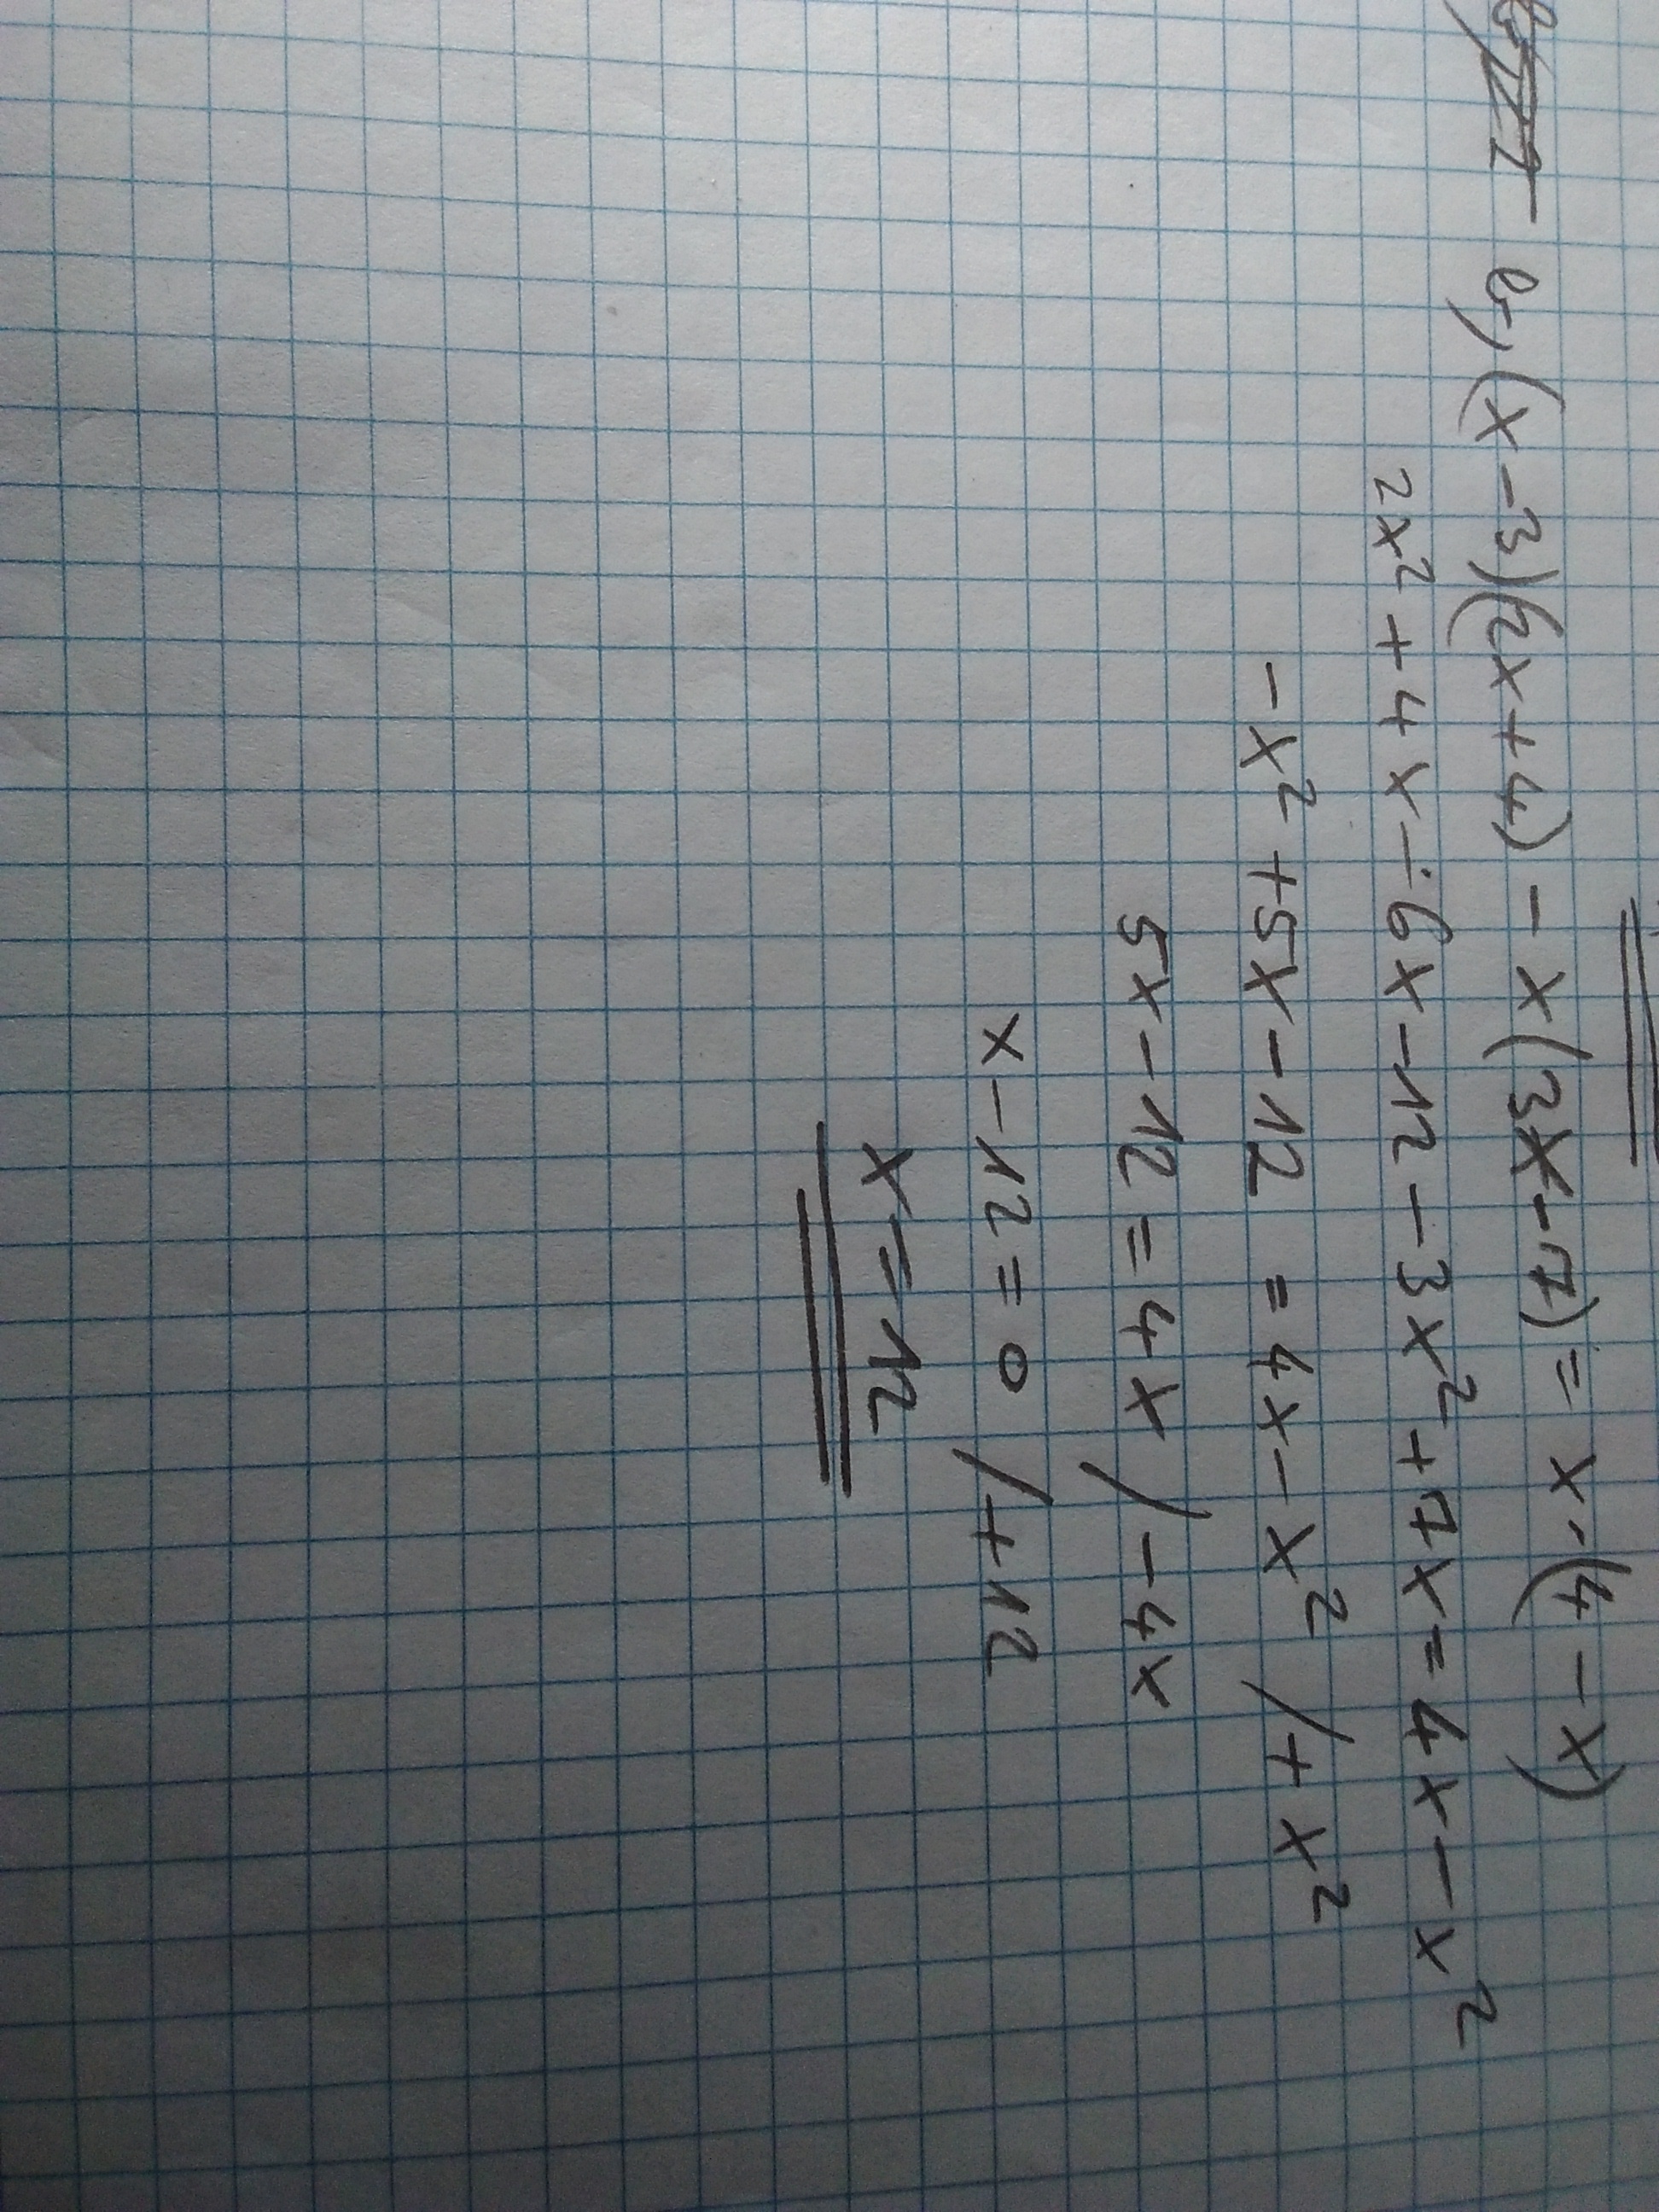 b) (x-3)(2x+4) - x(3x-7) = x·(4-x)
2x² + 4x - 6x - 12 - 3x² + 7x = 4x - x²
-x² + 5x - 12 = 4x - x² / + x²
5x - 12 = 4x / - 4x
x - 12 = 0 / + 12
x = 12